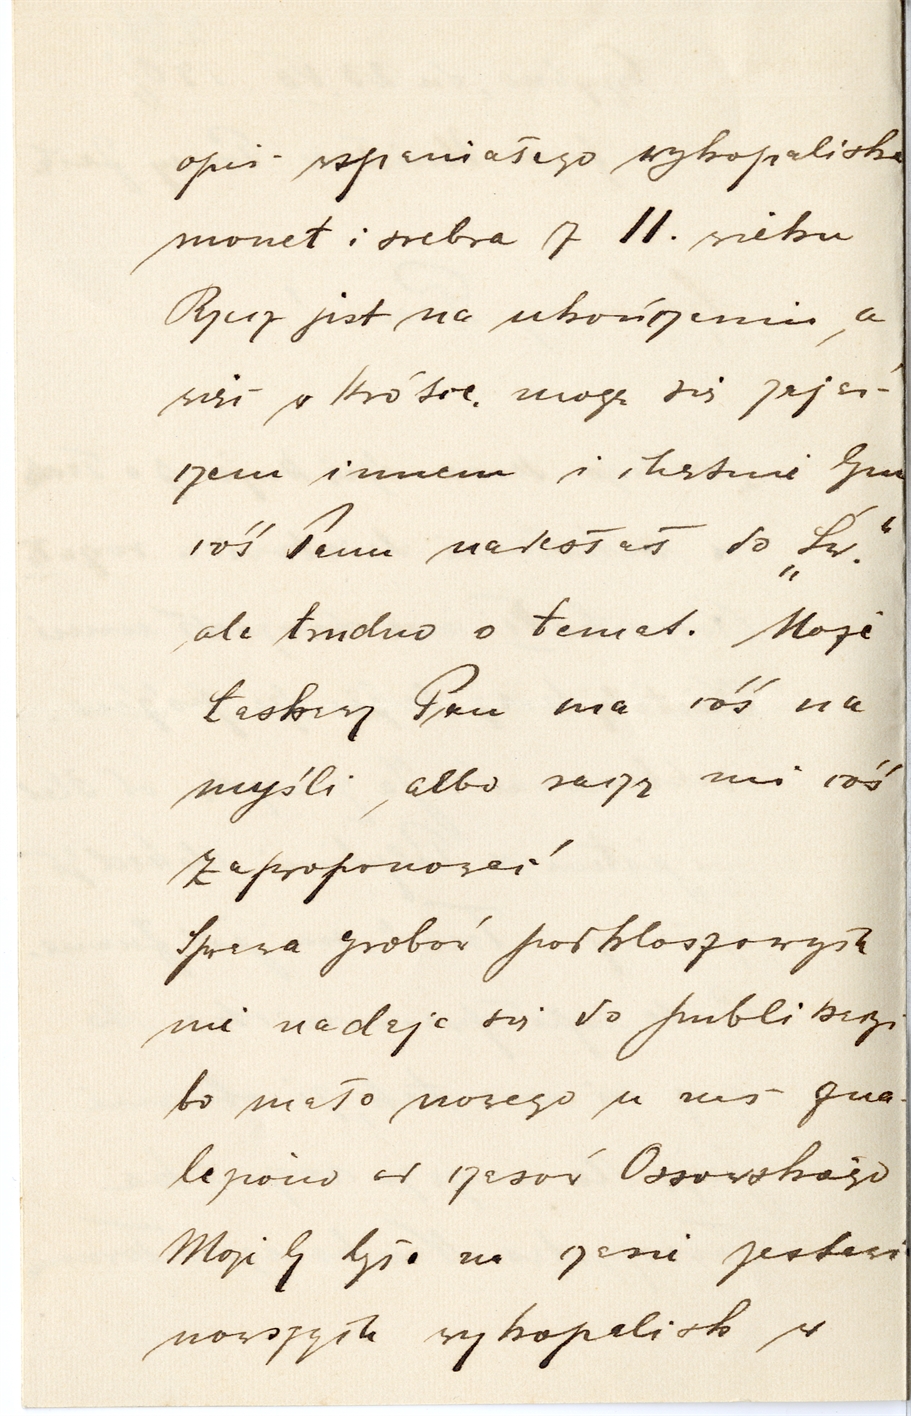 opis wspaniałego wykopaliska
monet i srebra z 11. wieku
Rzecz jest na ukończeniu, a
więc w krótce mogę się zająć
czem innem i chętnie bym
coś Panu nadesłał do „Św.“
ale trudno o temat. Może
Łaskawy Pan ma coś na
myśli, albo raczy mi coś
zaproponować
Sprawa grobów podkloszowych
nie nadaje się do publikacyi
bo mało nowego u nas zna-
leziono od czasów Ossowskiego
Może by było na czasie zestawić
nowszych wykopalisk w